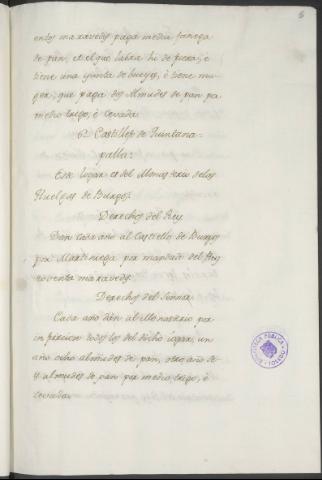 5
entos maravedis paga media fanega
de pan, et el que labra hi de fuera, é
tiene una yunta de bueyes, é tiene mu-
ger, que paga dos Almudes de pan po
medio trigo, é cevada.
Castillejo de Quintana-
palla:
Este lugar es del Monasterio de las
Huelgas de Burgos.
Derechos del Rey
Dan cada año al Castiello de Burgos
por Martiniega por mandado del Rey
noventa maravedis.
Derechos del Señor
Cada año dan al Monasterio por
infurcion todos los del dicho logar, un
año ocho almudes de pan, otro año de
almudes de pan por medio trigo, é
cevada.
BIBLIOTECA PÚBLICA
TOLEDO